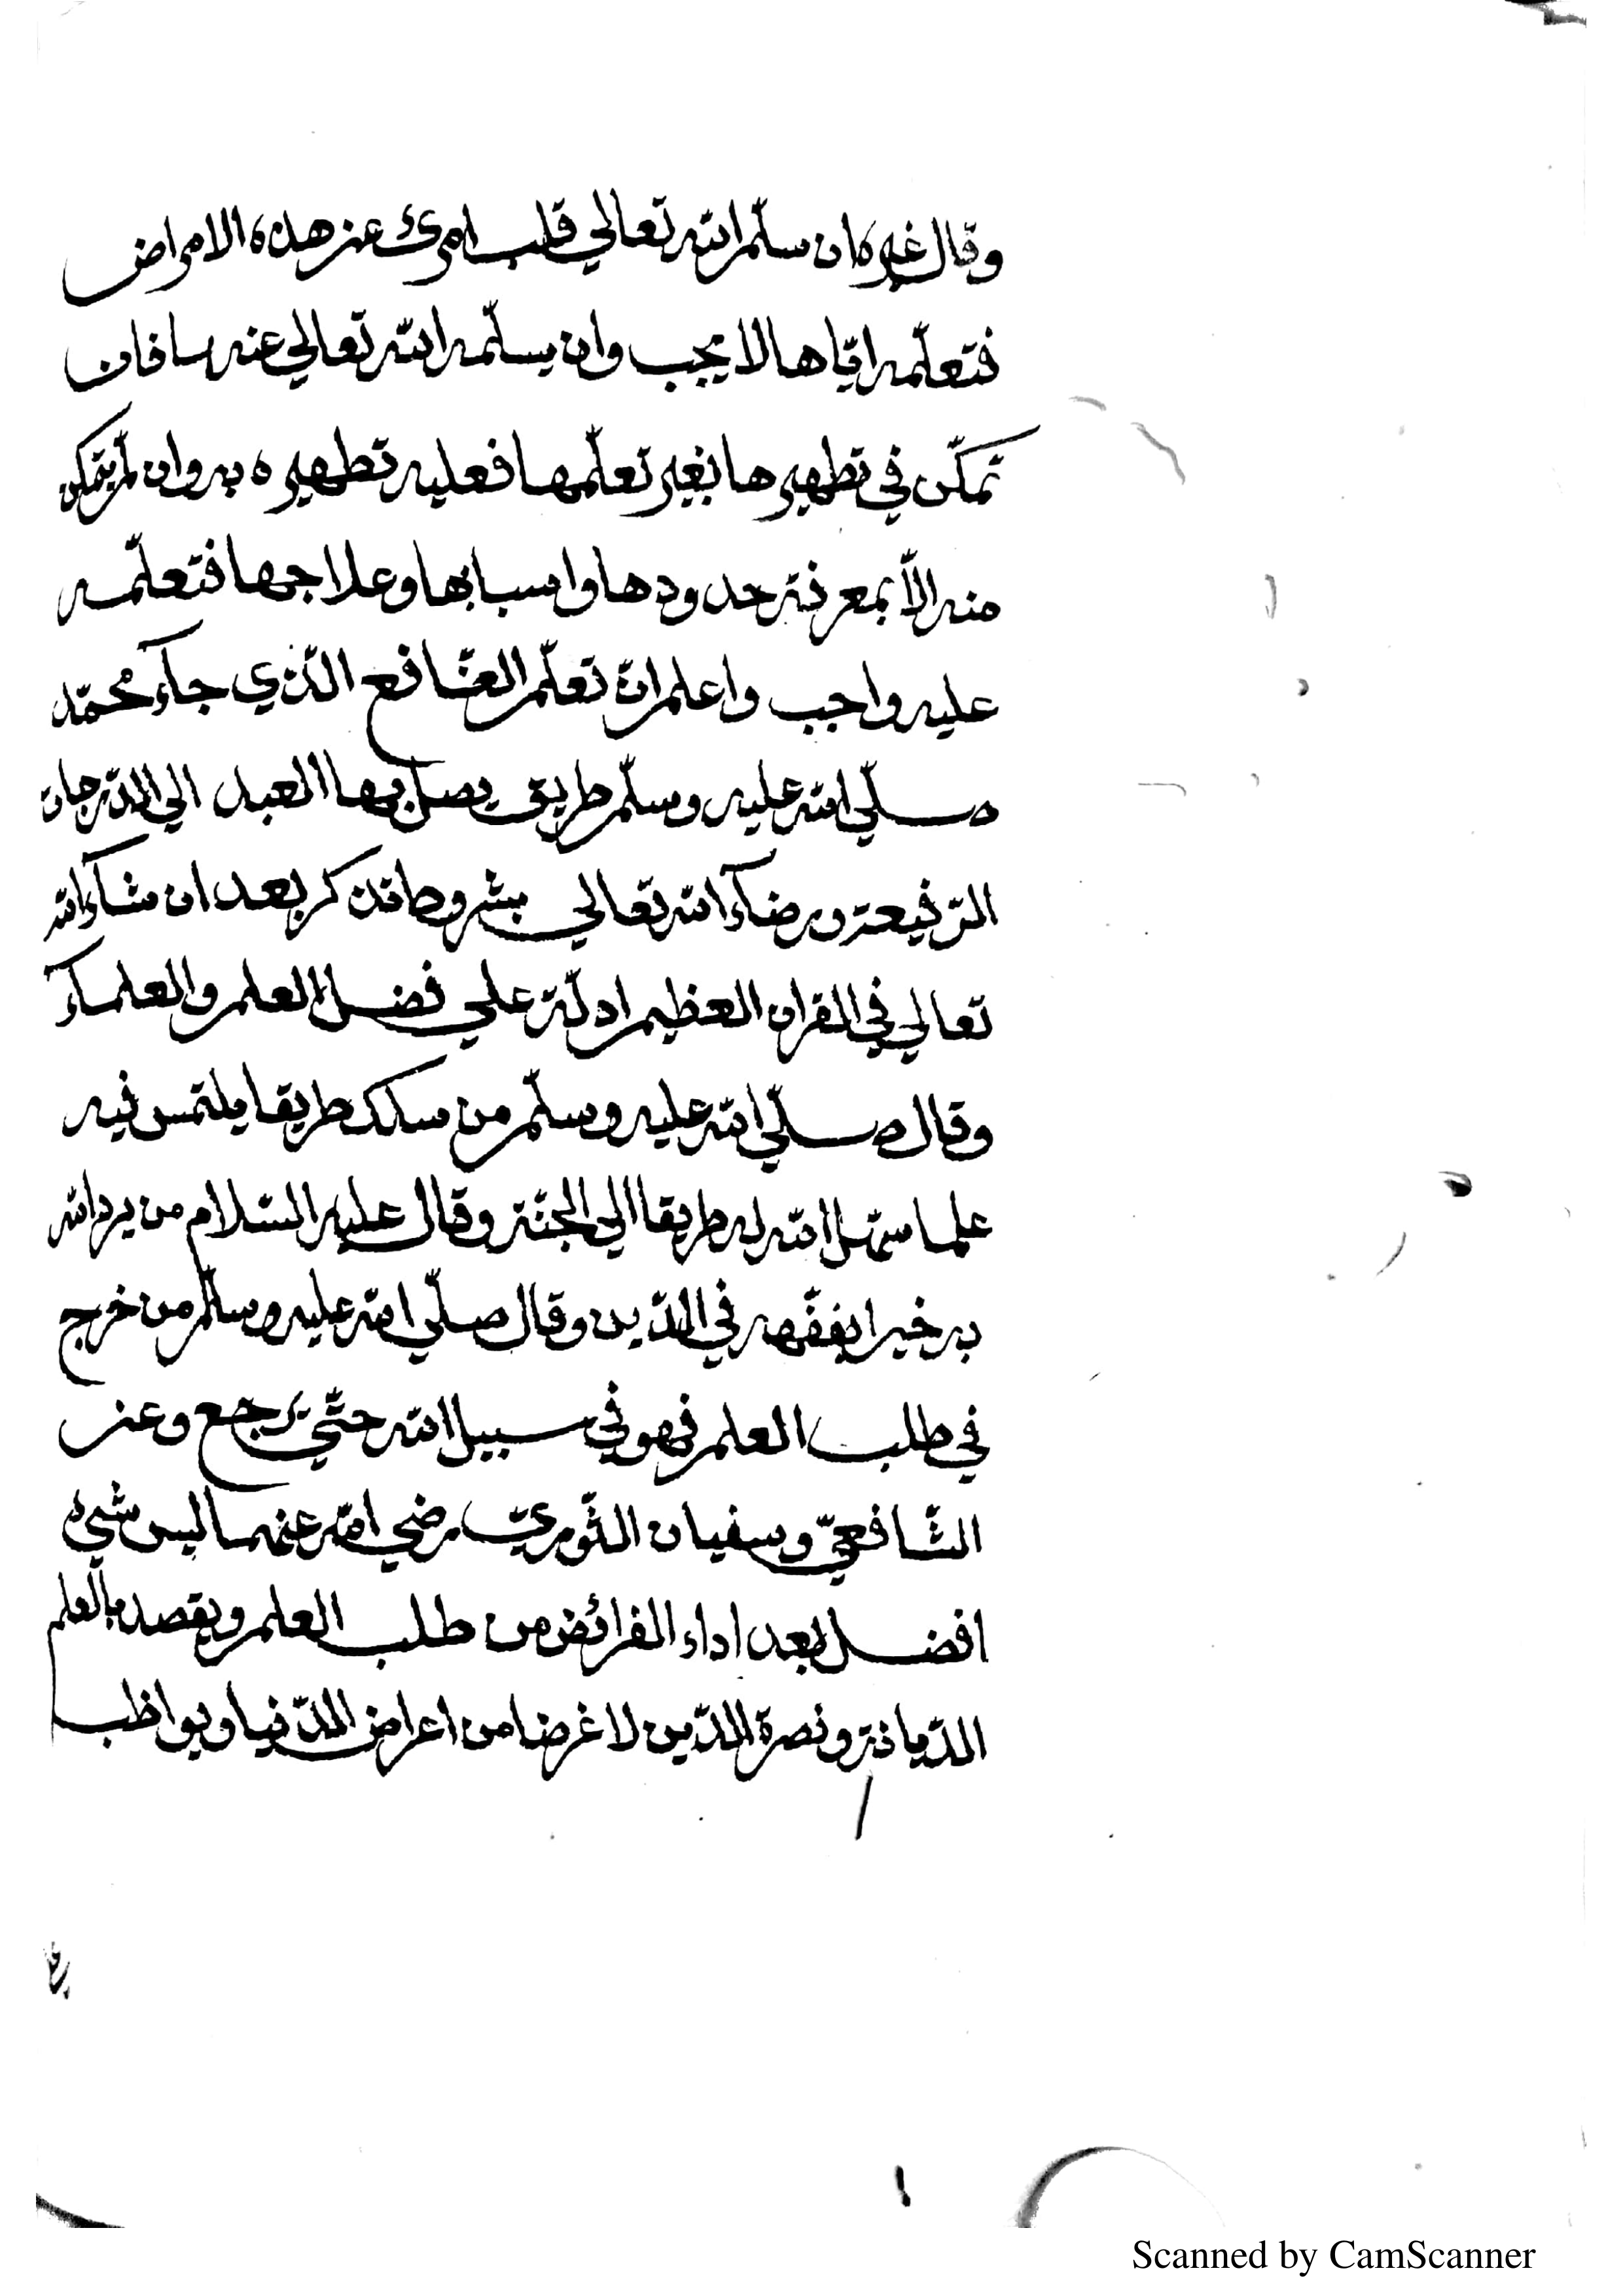 وقال غيره كان سلّم الله تعالي قلب امرئ عن هذه الامراض
فتعلّمه ايّاها لا يجب وان يسلّمه الله تعالي عنه فان
تمكّن في تطهيرها بغير تعلّمها فعليه تطهيره به وان لم يتمكن
منه الّا بمعرفة حدودها واسبابها وعلاجها فتعلّمه
عليه واجب واعلم انّ تعلّم النّافع الّذي جاء محمّد
صلّي الله عليه وسلّم طريق يصل بها العبد الي الدّرجات
الرّفيعة ورضاء الله تعالي بشروط تذكر بعد ان شاء الله
تعالي في القران العظيم ادلّة علي فضل العلم والعلماء
وقال صلّي الله عليه وسلّم من سلك طريقا يلتمس فيه
علما سهّل الله له طريقا الي الجنّة وقال عليه السّلام من يرد الله
به خيرا يفقّهه في الدّين وقال صلّي الله عليه وسلّم من خرج
في طلب العلم فهو في سبيل الله حتّي يرجع وعن
الشّافعيّ وسفيان الثّوريّ رضي الله عنهما ليس شيء
افضل بعد اداء الفرائض من طلب العلم ويقصد بالعلم
الدّيانة ونصرة الدّين لا غرضا من اعراض الدّنيا ويواظب
Scanned by CamScanner